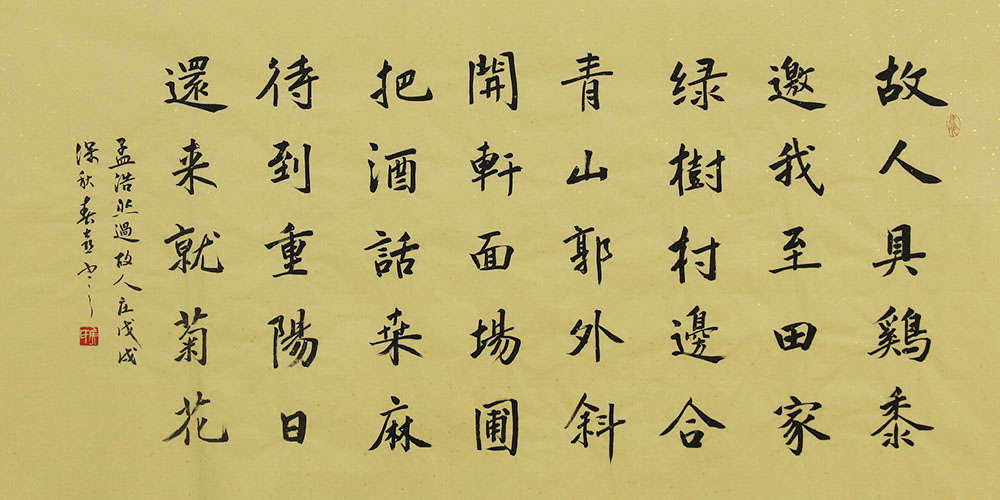 故人具鷄黍
邀我至田家
绿樹村邊合
青山郭外斜
開軒面場圃
把酒話桒麻
待到重陽日
還来就菊花
孟浩然過故人庄戊戌
深秋春